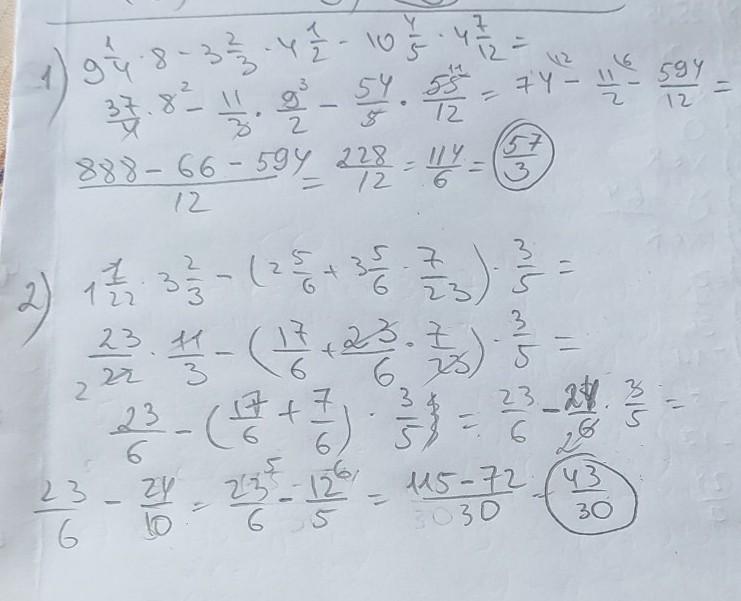 1) 9 1/4 · 8 - 3 2/3 · 4 1/2 - 10 4/5 · 4 7/12 =
37/4 · 8² - 11/3 · 9³/2 - 54/5 · 55¹¹/12 = 74¹² - 11⁶/2 - 594/12 =
888 - 66 - 594/12 = 228/12 = 114/6 = 57/3
2) 1 1/22 · 3 2/3 - (2 5/6 + 3 5/6 · 7/23) · 3/5 =
23/22 2 · 11/3 - (17/6 + 23/6 · 7/23) · 3/5 =
23/6 - (17/6 + 7/6) · 3/5 = 23/6 - 24/6 2 · 3/5 =
23/6 - 24/10 = 23⁵/6 - 12⁶/5 = 115-72/30 = 43/30